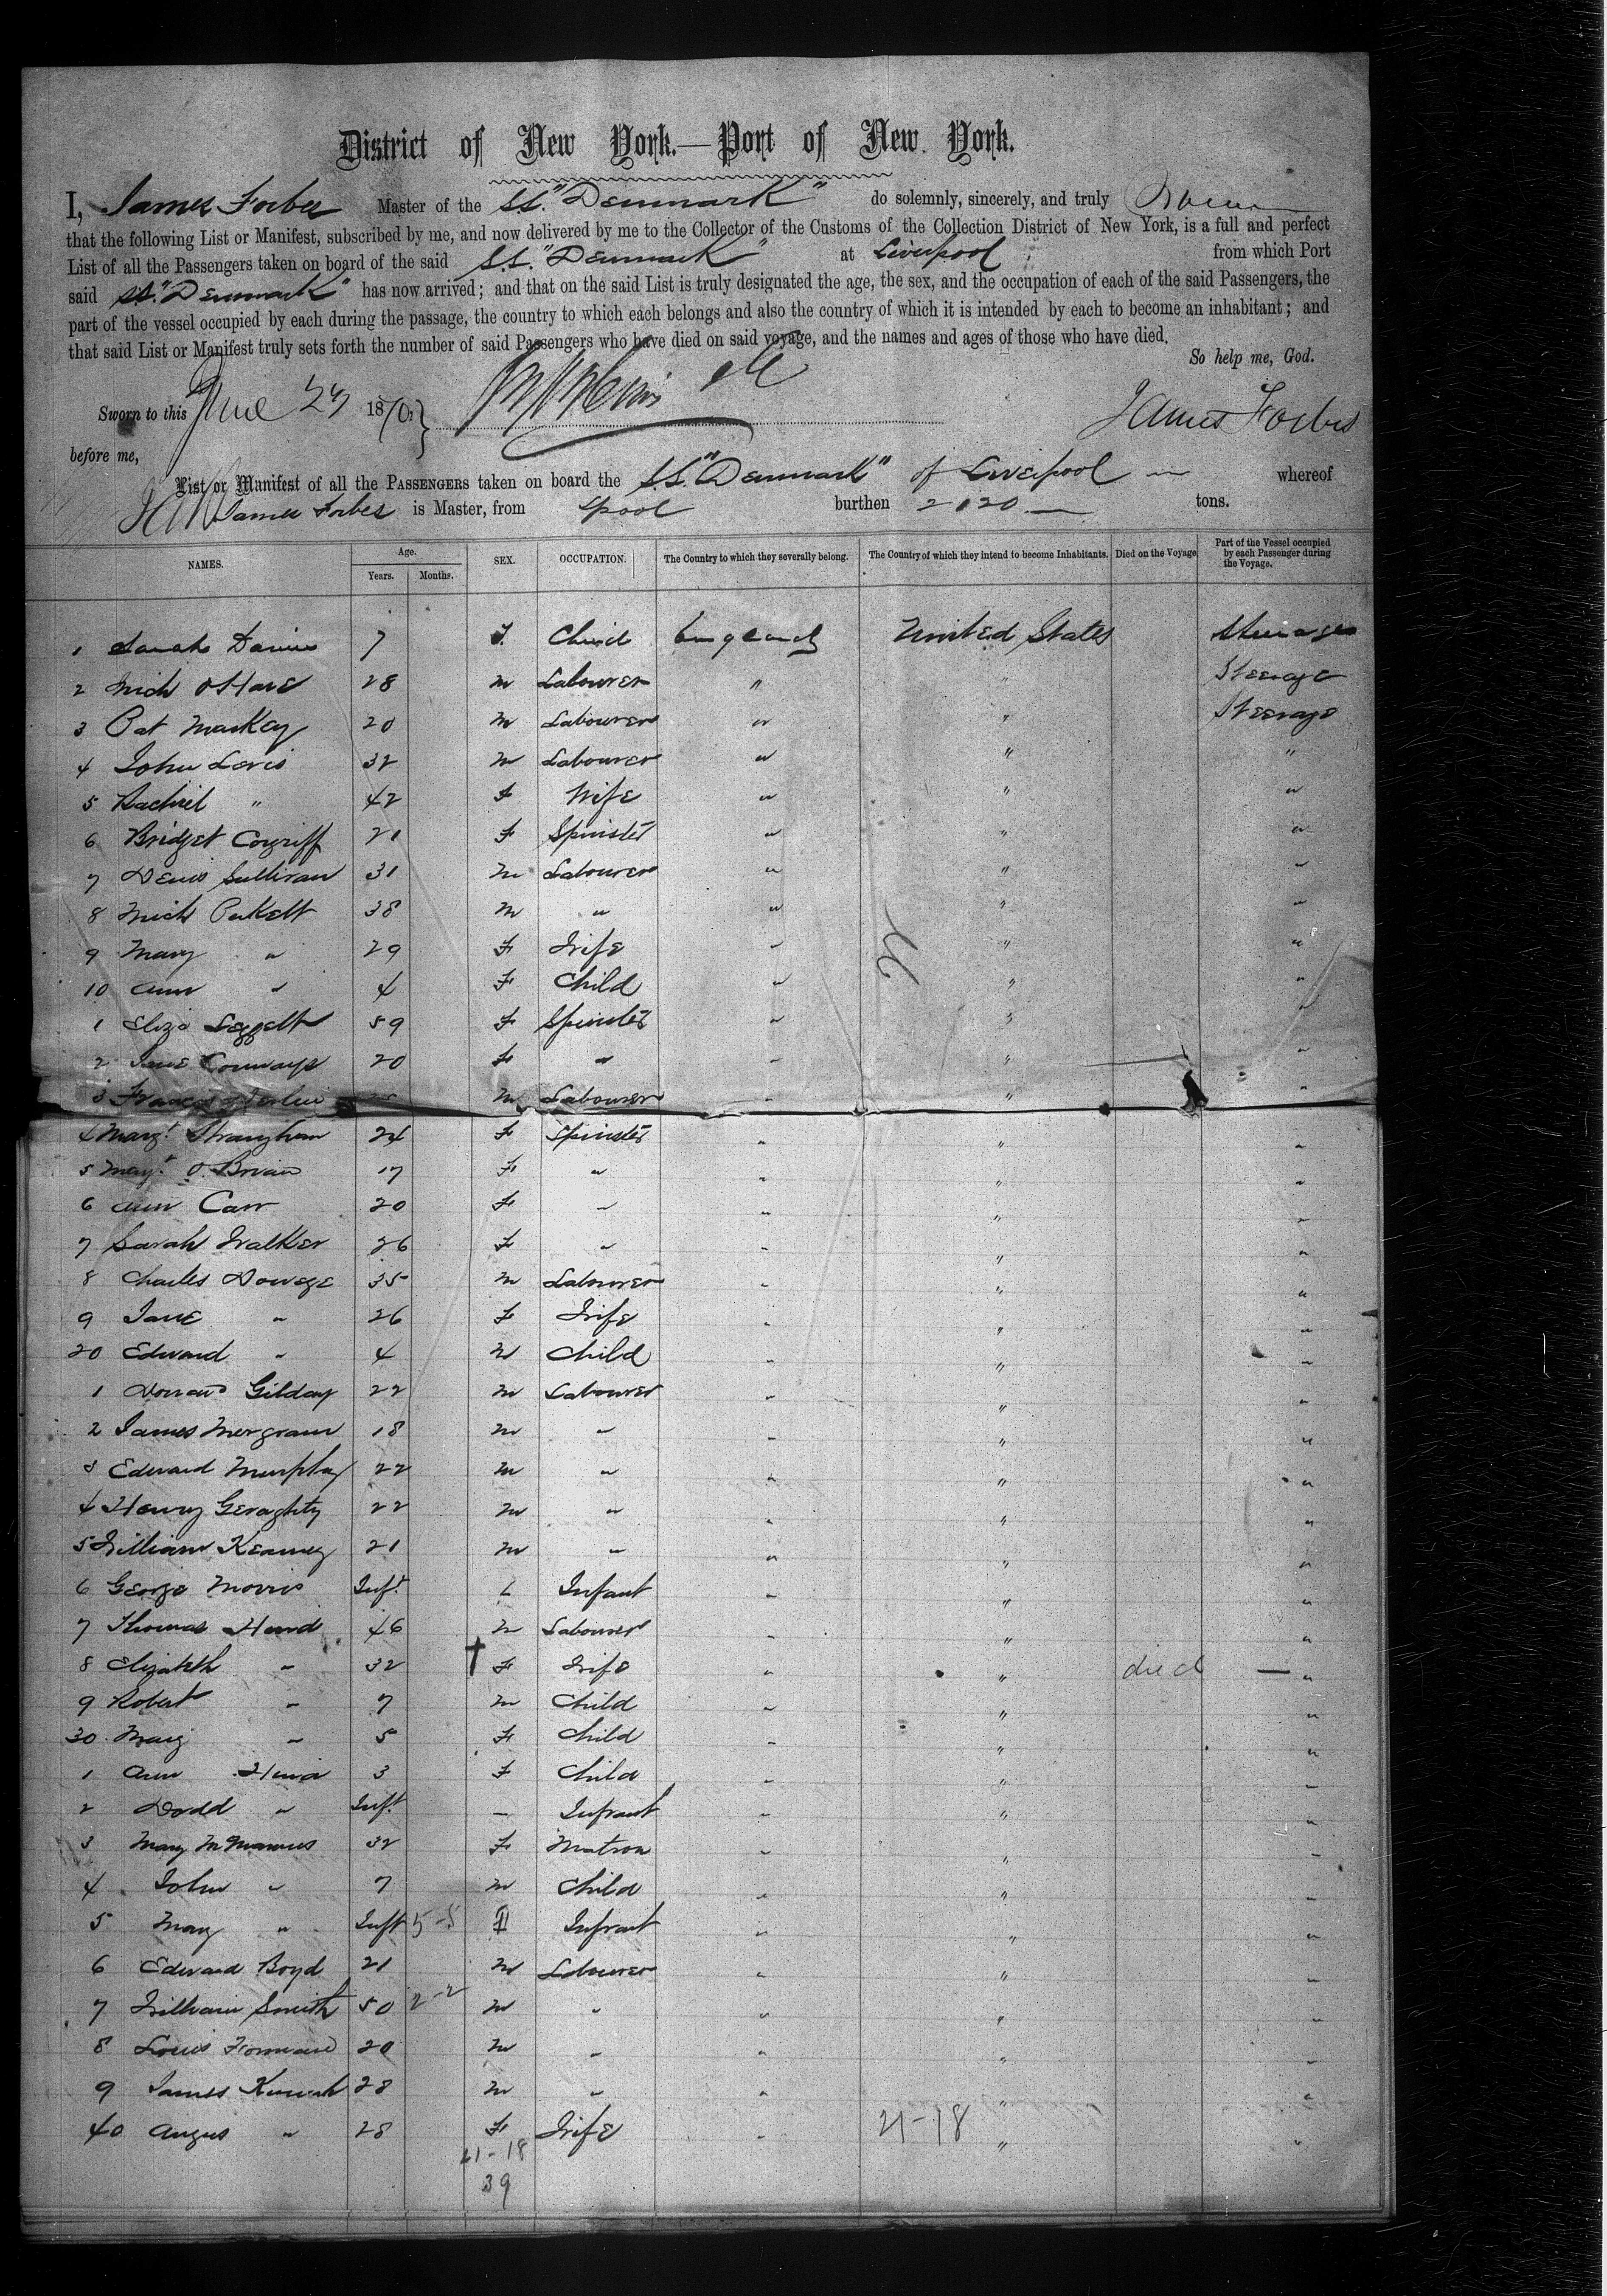 District of New York.—Port of New York.
I, James Forbes Master of the S.S. "Denmark" do solemnly, sincerely, and truly
that the following List or Manifest, subscribed by me, and now delivered by me to the Collector of the Customs of the Collection District of New York, is a full and perfect
List of all the Passengers taken on board of the said S.S. "Denmark" at Liverpool from which Port
said SS. "Denmark" has now arrived; and that on the said List is truly designated the age, the sex, and the occupation of each of the said Passengers, the
part of the vessel occupied by each during the passage, the country to which each belongs and also the country of which it is intended by each to become an inhabitant; and
that said List or Manifest truly sets forth the number of said Passengers who have died on said voyage, and the names and ages of those who have died.
So help me, God.
Sworn to this June 27 1870
James Forbes
before me,
List or Manifest of all the PASSENGERS taken on board the S.S. "Denmark" of Liverpool whereof
James Forbes is Master, from Lpool burthen 2120 tons.
NAMES. Age. Years. Months. SEX. OCCUPATION. The Country to which they severally belong. The Country of which they intend to become Inhabitants. Died on the Voyage. Part of the Vessel occupied by each Passenger during the Voyage.
1 Sarah Davies 7 F. Child England United States Steerage
2 Mich O'Hare 28 M Labourer " " Steerage
3 Pat Mackey 20 M Labourer " " Steerage
4 John Levis 32 M Labourer " " "
5 Rachiel " 42 F Wife " " "
6 Bridget Cogriff 21 F Spinster " " "
7 Denis Sullivan 31 M Labourer " " "
8 Mich 38 M " " " "
9 Mary " 29 F Wife " " "
10 Ann " 4 F Child " " "
1 Eliza Leggett 59 F Spinster " " "
2 Jane Conways 20 F " " " "
3 Francis M Labourer " " "
4 Margt. Straughan 24 F Spinster " " "
5 Margt. O.Brian 17 F " " " "
6 Ann Carr 20 F " " " "
7 Sarah Walker 26 F " " " "
8 Charles Dowege 35 M Labourer " " "
9 Jane " 26 F Wife " " "
20 Edward " 4 M Child " " "
1 Gilday 22 M Labourer " " "
2 James Mergram 18 M " " " "
3 Edward Murphy 22 M " " " "
4 Henry Geraghty 22 M " " " "
5 William Kearney 21 M " " " "
6 George Morris Inft. Infant " " "
7 Thomas Hend 46 M Labourer " " "
8 Elizabeth " 32 † F Wife " " died — "
9 Robert " 7 M Child " " "
30 Mary " 5 F Child " " "
1 Ann Hend 3 F Child " " "
2 Dodd " Inft. — Infant " " "
3 Mary McManus 32 F Matron " " "
4 John " 7 M Child " " "
5 Mary " Inft 5-5 F Infant " " "
6 Edward Boyd 21 M Labourer " " "
7 William Smith 50 2-2 M " " " "
8 Louis Forward 20 M " " " "
9 James 28 M " " " "
40 Angus " 28 F Wife " 21-18 " "
21-18
39